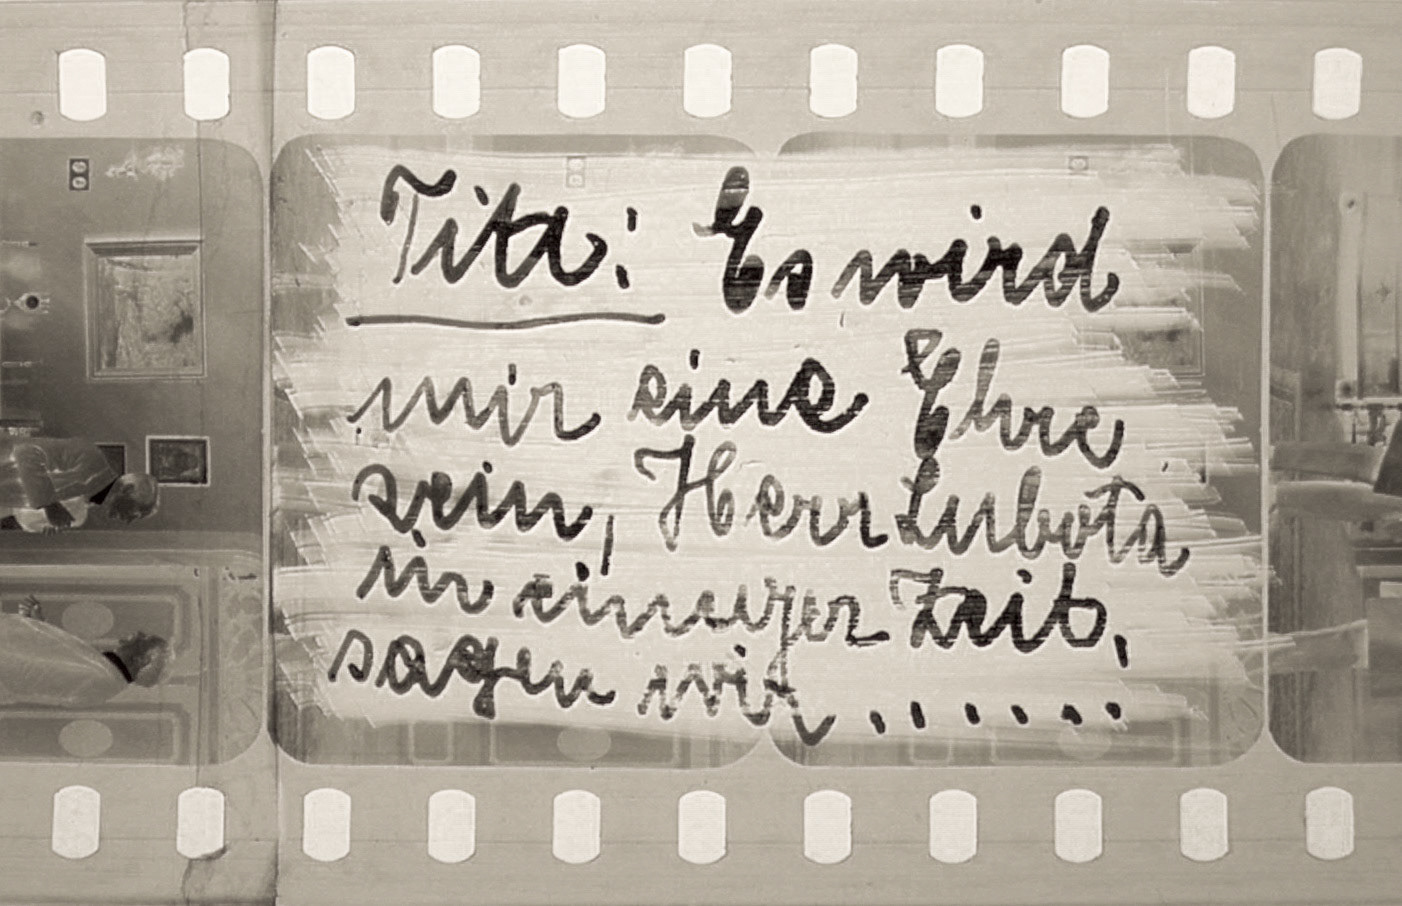 Tita: Es wird
mir eine Ehre
sein, Herr Lubota
in einiger Zeit,
sagen wir ......